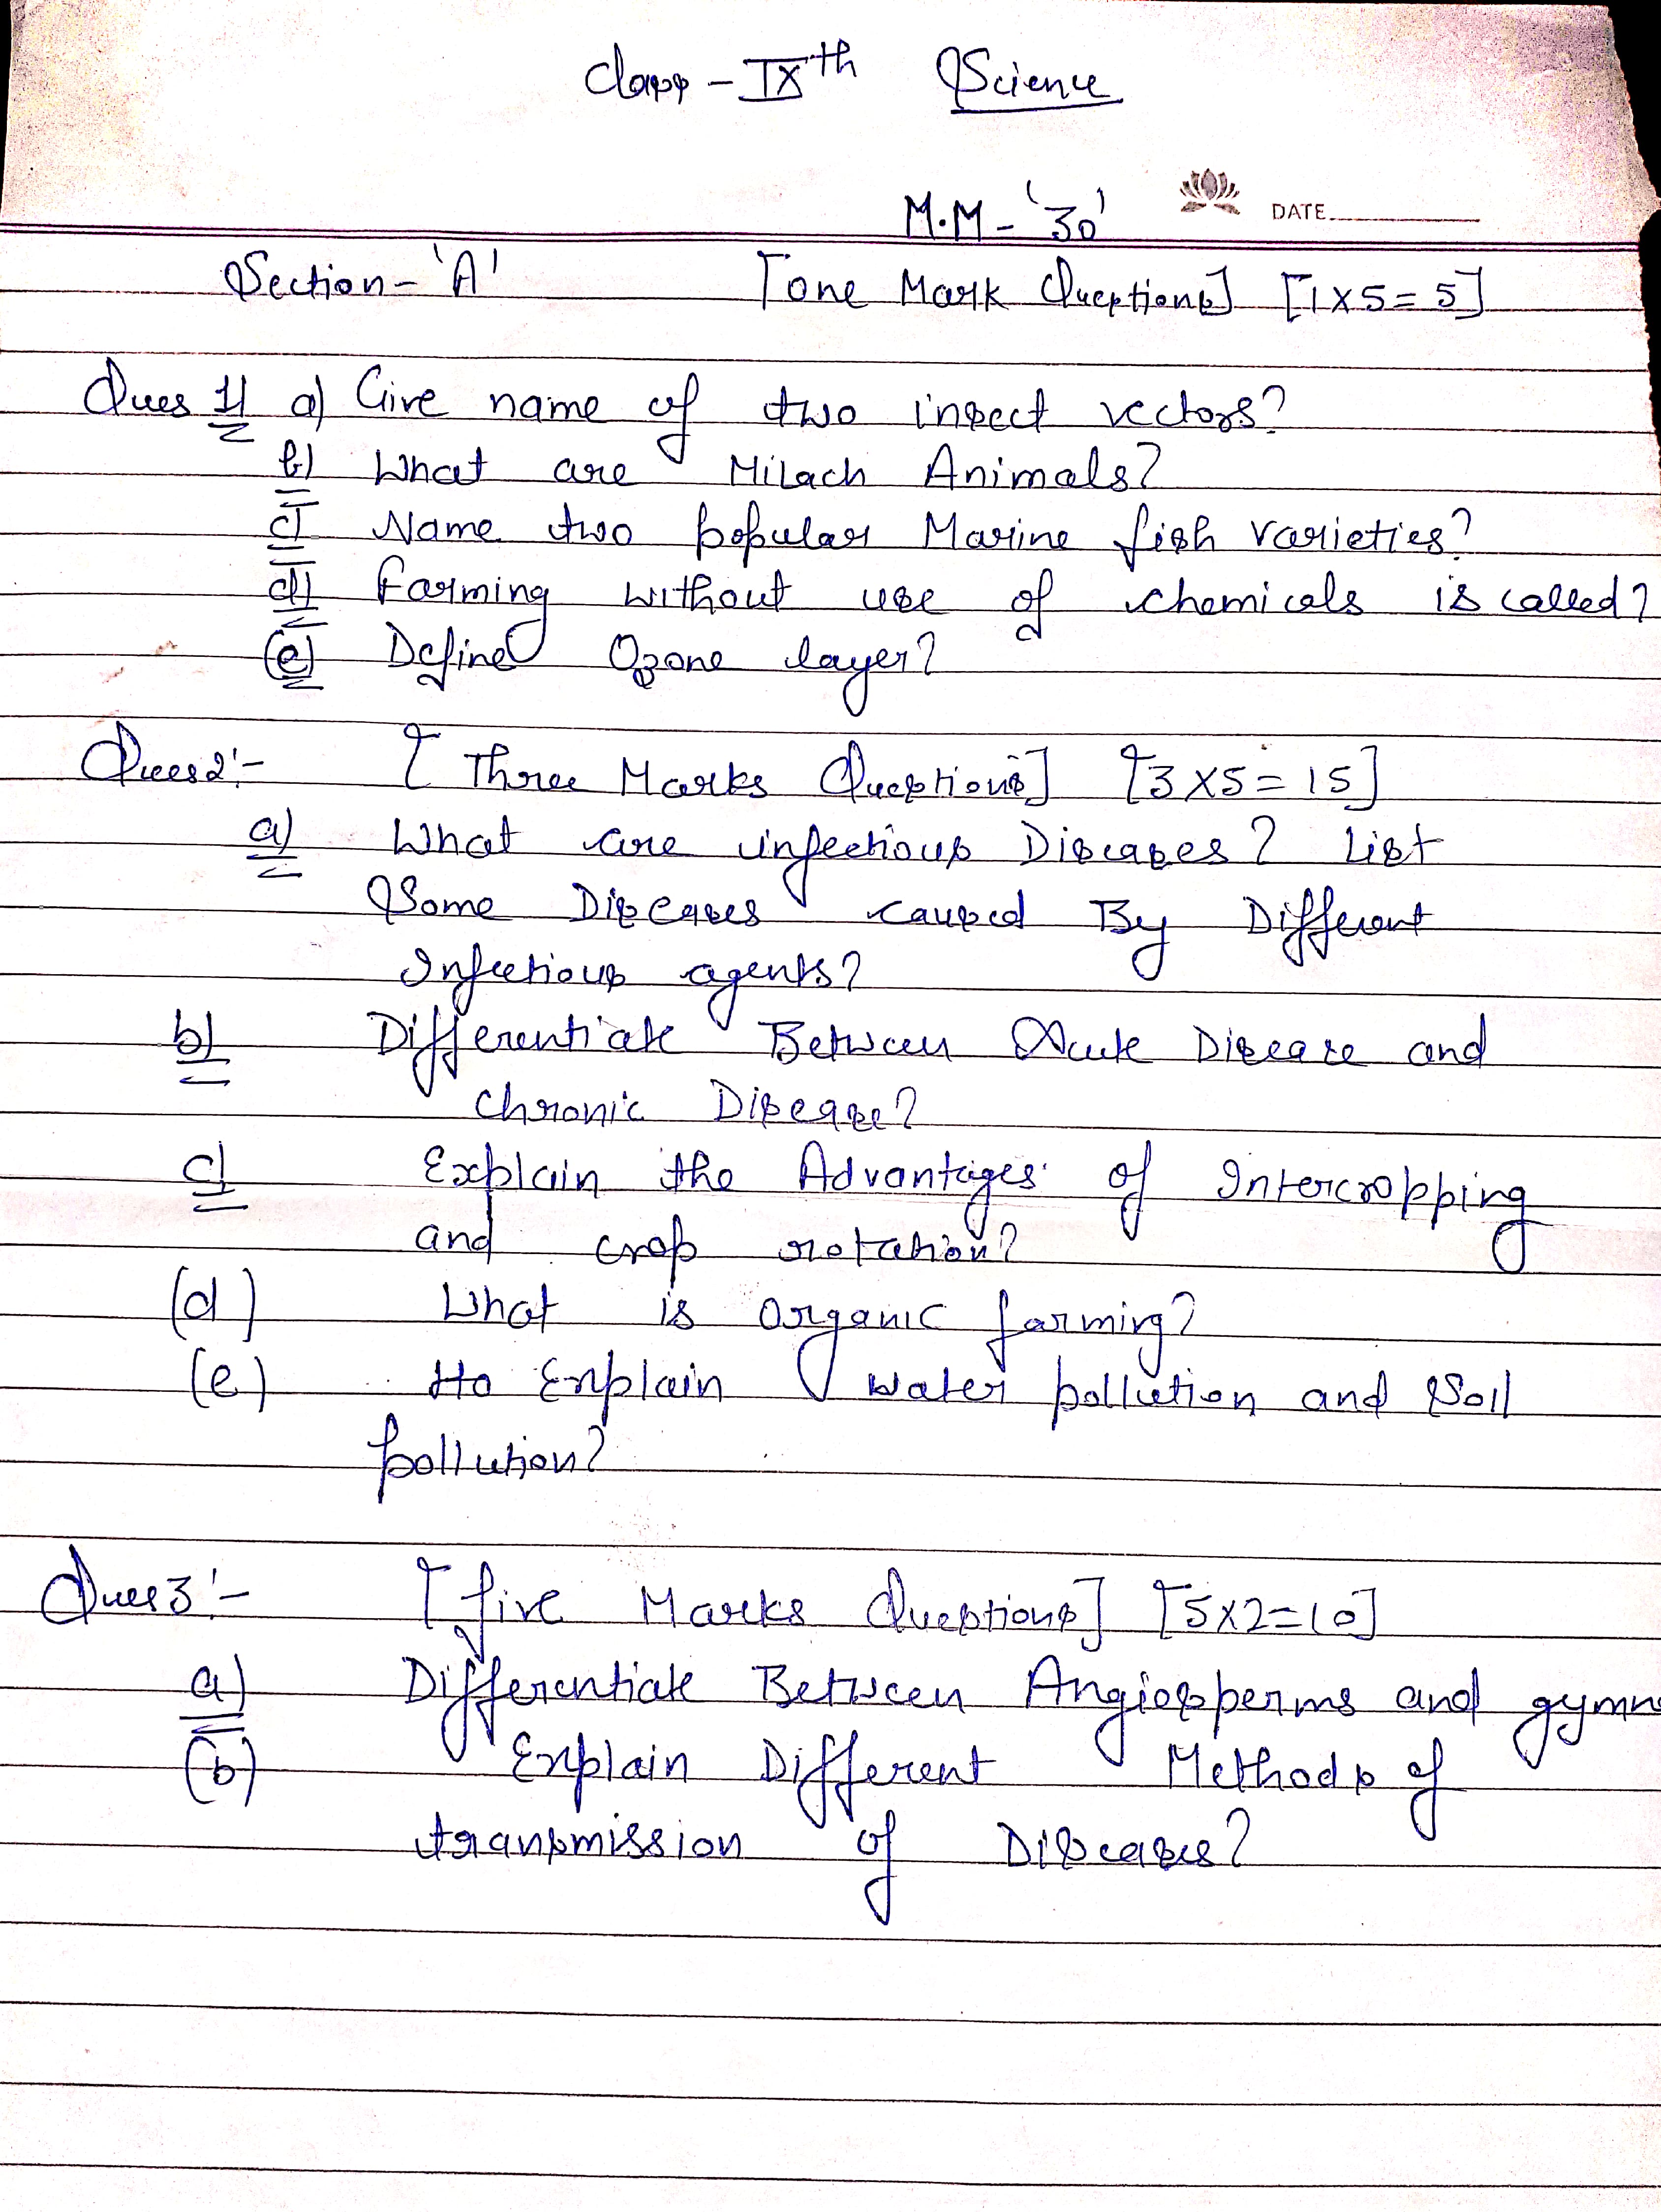 Class - IXth Science
M.M - '30'
DATE
Section - 'A' [one Mark Questions] [1x5=5]
Ques 1) a) Give name of two insect vectors?
b) What are Milach Animals?
c) Name two popular Marine fish varieties?
d) Farming without use of chemicals is called?
(e) Define Ozone layer?
Ques 2:- [Three Marks Questions] [3x5=15]
a) What are infectious Diseases? List
Some Diseases caused By Different
Infectious agents?
b) Differentiate Between Acute Disease and
Chronic Disease?
c) Explain the Advantages of Intercropping
and crop rotation?
(d) What is organic farming?
(e) Explain water pollution and Soil
pollution?
Ques 3:- [five Marks Questions] [5x2=10]
a) Differentiate Between Angiosperms and gymn
(b) Explain Different Methods of
transmission of Diseases?